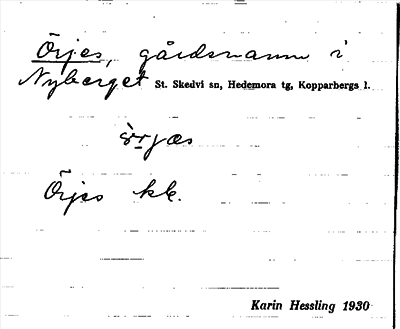 Örjes, gårdsnamn i
Nyberget St. Skedvi sn, Hedemora tg, Kopparbergs l.
Örjes kb.
Karin Hessling 1930